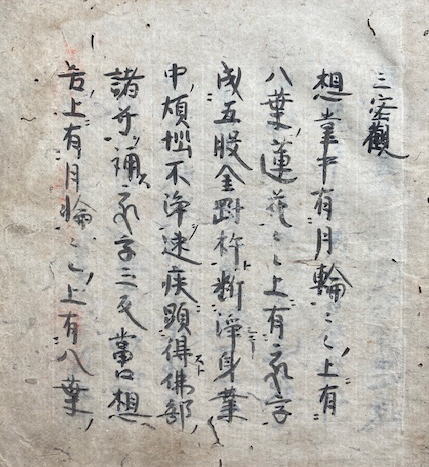 三密觀
想掌中有月輪〻〻上有
八葉蓮花〻〻上有字
成五股金剛杵ト斷淨身業
中煩惱不淨速疾顯得佛部
諸補ス字三反當口想
舌上有月輪〻〻上有八葉